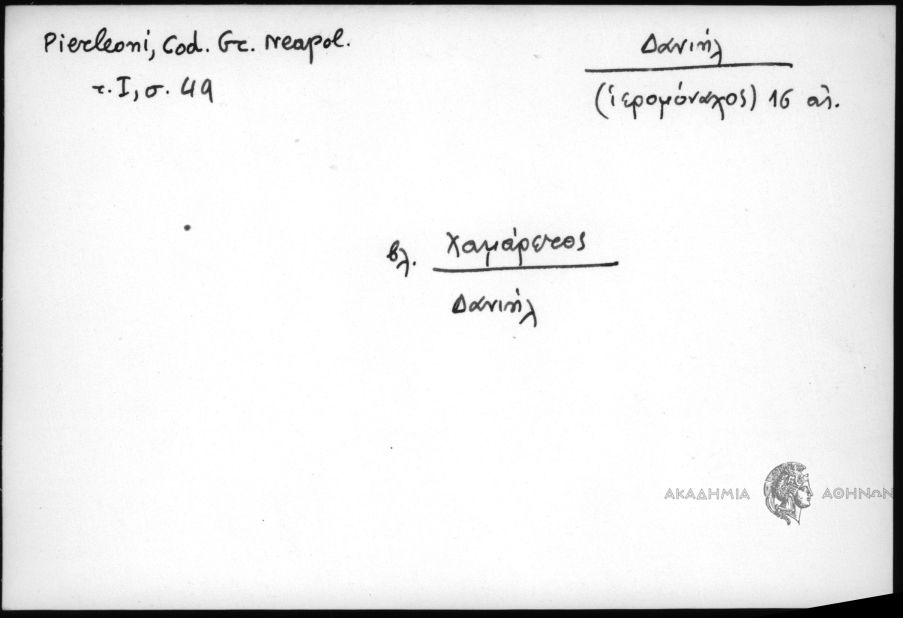 Pierleoni, Cod. Gr. Neapol.
τ. I, σ. 49
Δανιήλ
(ἱερομόναχος) 16 αἰ.
βλ. Χαμάρετος
Δανιήλ
ΑΚΑΔΗΜΙΑ ΑΘΗΝΩΝ